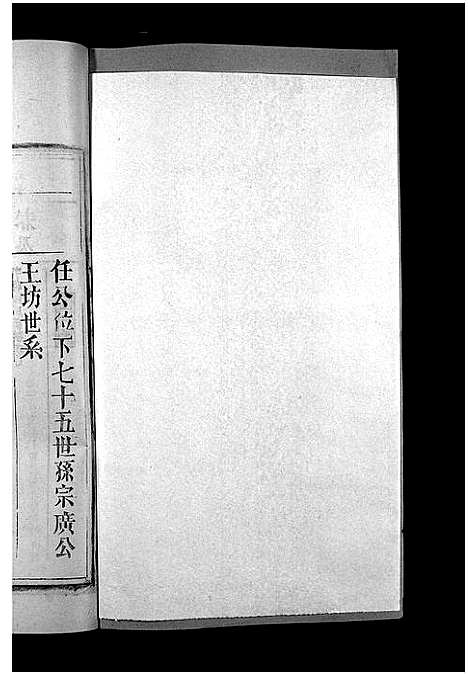 任公位下七十五世孫宗廣公
王坊世系